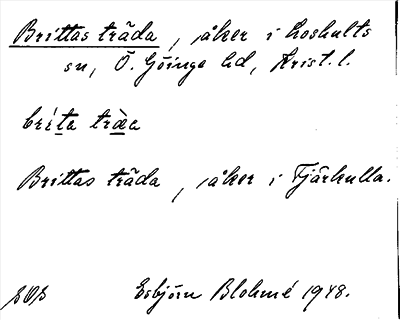 Brittas träda, åker i Loshults
sn, Ö. Göinge hd, Krist. l.
bríta træ̀a
Brittas träda, åker i Tjärkulla.
sOs Esbjörn Blohmé 1948.